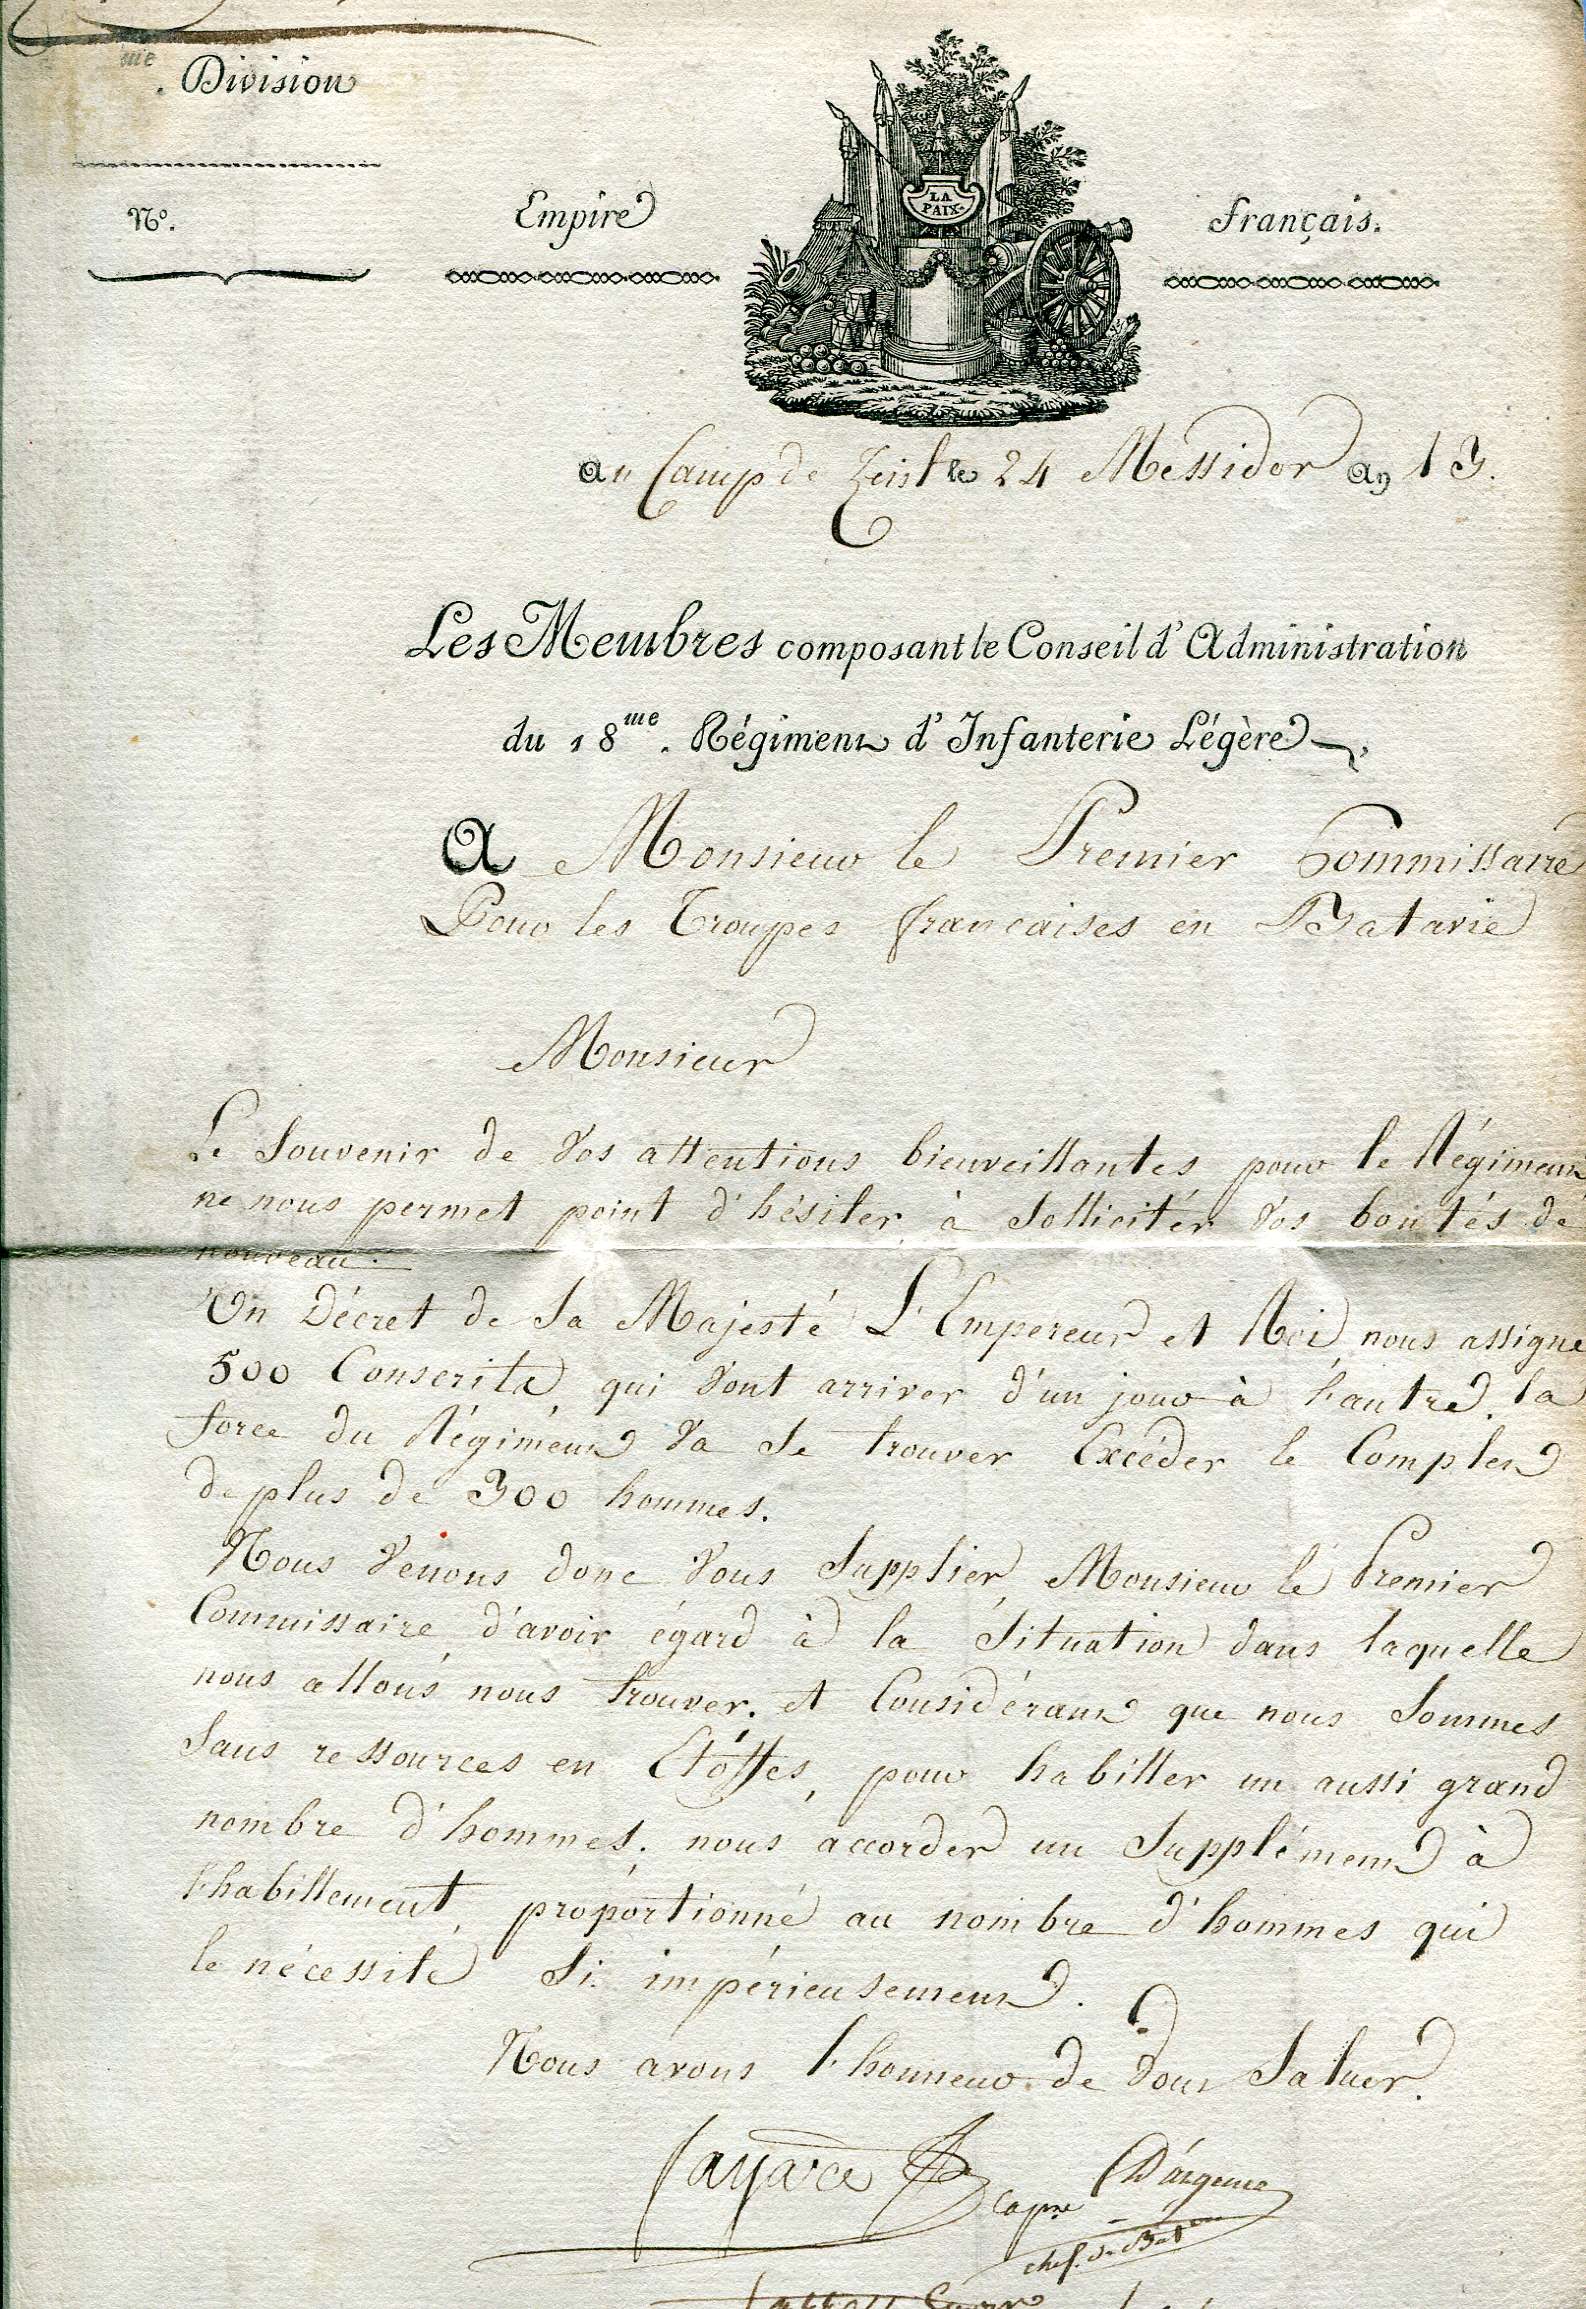 me. Division
N°.
Empire
français.
LA
PAIX.
au Camp de Zeist le 24 Messidor an 13.
Les Membres composant le Conseil d'Administration
du 18me. Régiment d'Infanterie Légère,
A Monsieur le Premier Commissaire
Pour les Troupes françaises en Batavie
Monsieur
Le Souvenir de Vos attentions bienveillantes pour le Régiment
ne nous permet point d'hésiter à Solliciter Vos bontés de
nouveau.
Un Décret de Sa Majesté L'Empereur et Roi nous assigne
500 Conscrits qui Vont arriver d'un jour à l'autre. la
force du Régiment Va Se trouver Excéder le Complet
de plus de 300 hommes.
Nous Venons donc Vous Supplier, Monsieur le Premier
Commissaire d'avoir égard à la Situation dans laquelle
nous allons nous trouver. et Considérant que nous Sommes
Sans ressources en Etoffes, pour habiller un aussi grand
nombre d'hommes; nous accorder un Supplément à
l'habillement, proportionné au nombre d'hommes qui
le nécessite Si impérieusement.
Nous avons l'honneur de Vous Saluer.
Cayarce capne D'argence
chef. de Baton